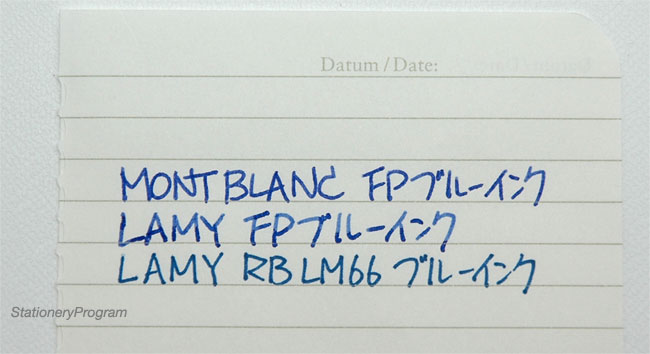 Datum / Date:
MONTBLANC FPブルーインク
LAMY FPブルーインク
LAMY RB LM66 ブルーインク
StationeryProgram